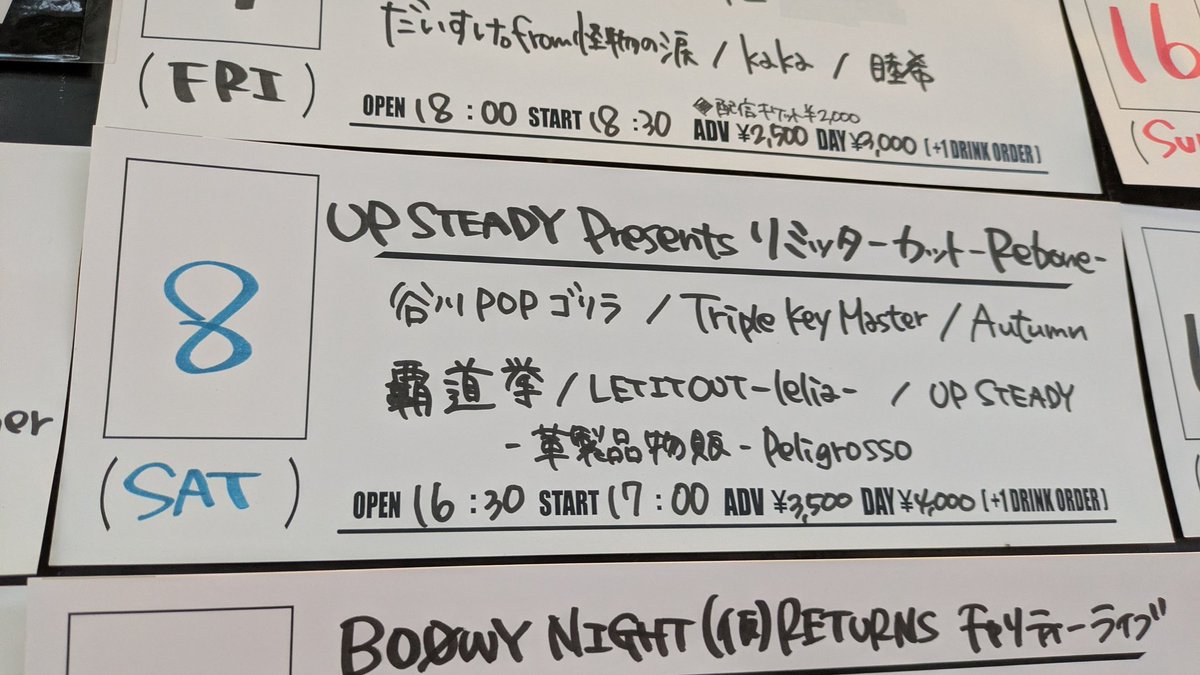 だいすけ。from怪物の涙 / kaka / 睦希
(FRI)
OPEN 18:00 START 18:30 ADV ¥2,500 DAY ¥3,000 [+1 DRINK ORDER]
◆配信チケット¥2,000
16
8
(SAT)
UP STEADY Presents リミッターカット-Rebone-
谷川POPゴリラ / Triple Key Master / Autumn
覇道拳 / LETITOUT-lelia- / UP STEADY
-革製品物販- Peligrosso
OPEN 16:30 START 17:00 ADV ¥3,500 DAY ¥4,000 [+1 DRINK ORDER]
BOØWY NIGHT(仮)RETURNS チャリティーライブ